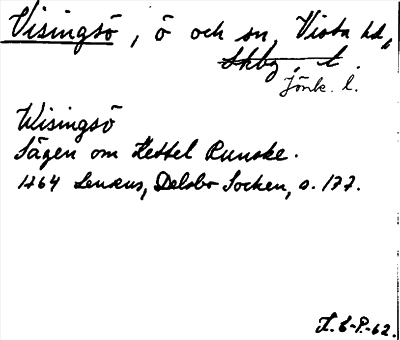 Visingsö, ö och sn, Vista hd,
Skbg. l.
Jönk. l.
Wisingsö
Sägen om Kettel Runske.
1764 Lenæus, Delsbo Socken, s. 177.
H. E-P.-62.